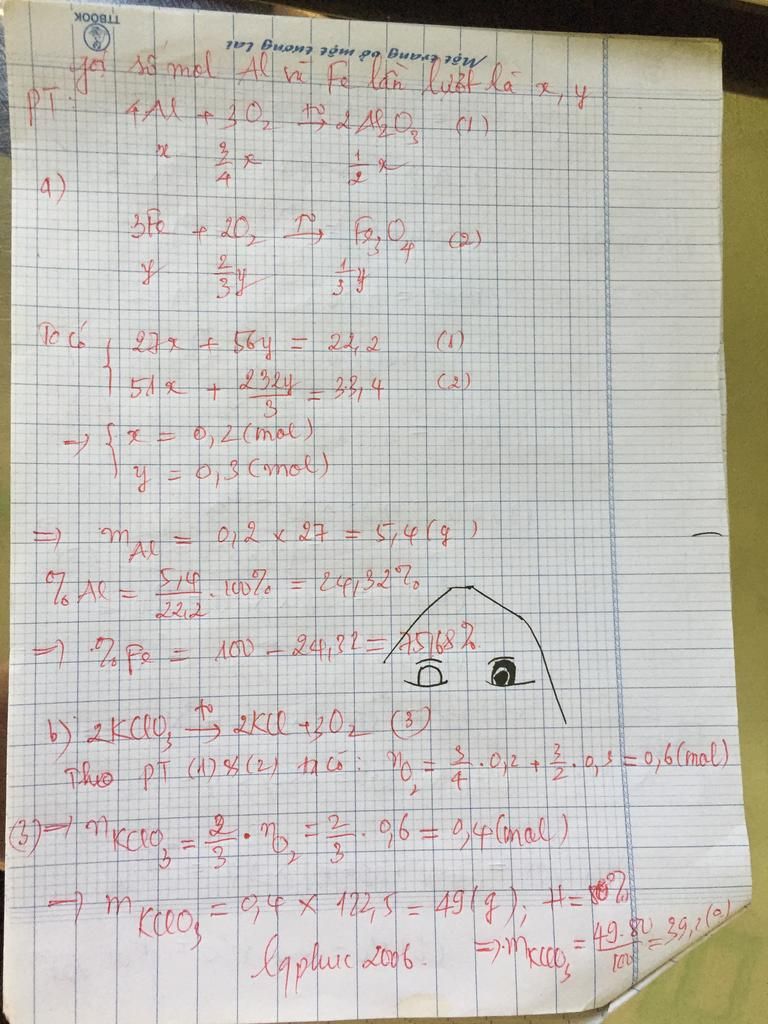 TTBOOK
Một trang vở một tương lai
Gọi số mol Al và Fe lần lượt là x, y
PT: 4Al + 3O₂ →(t⁰) 2Al₂O₃ (1)
x 3/4 x 1/2 x
a)
3Fe + 2O₂ →(t⁰) Fe₃O₄ (2)
y 2/3 y 1/3 y
Ta có { 27x + 56y = 22,2 (1)
51x + 232y/3 = 33,4 (2)
⇒ { x = 0,2 (mol)
y = 0,3 (mol)
⇒ m Al = 0,2 × 27 = 5,4 (g)
% Al = 5,4/22,2 . 100% = 24,32%
⇒ % Fe = 100 – 24,32 = 75,68%
b) 2KClO₃ →(t⁰) 2KCl + 3O₂ (3)
Theo PT (1) & (2) ta có: n O₂ = 3/4 . 0,2 + 3/2 . 0,3 = 0,6 (mol)
(3) ⇒ n KClO₃ = 2/3 . n O₂ = 2/3 . 0,6 = 0,4 (mol)
⇒ m KClO₃ = 0,4 × 122,5 = 49 (g); H = 80%
⇒ m KClO₃ = 49.80/100 = 39,2 (g)
lqphuc 2006.